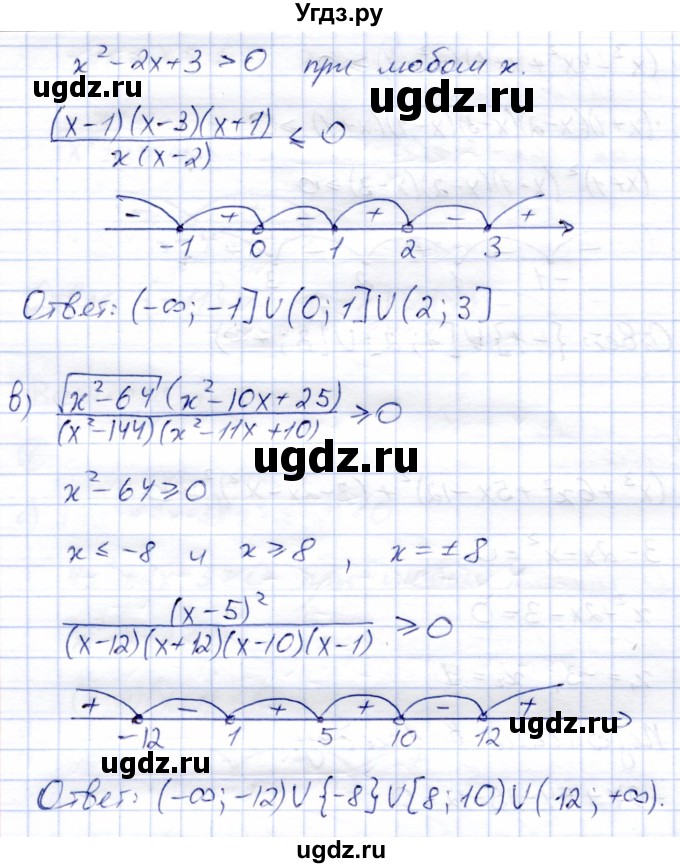 Угдз.ру
x² - 2x + 3 > 0 при любом x.
ugdz.ru
(x-1)(x-3)(x+1) / x(x-2) ≤ 0
- + - + - +
-1 0 1 2 3
ugdz.ru
Ответ: (-∞; -1] ∪ (0; 1] ∪ (2; 3]
в) √x²-64 (x²-10x+25) / (x²-144)(x²-11x+10) ≥ 0
ugdz.ru
x² - 64 ≥ 0
x ≤ -8 и x ≥ 8, x = ±8
ugdz.ru
(x-5)² / (x-12)(x+12)(x-10)(x-1) ≥ 0
+ - + + - +
-12 1 5 10 12
ugdz.ru
Ответ: (-∞; -12) ∪ {-8} ∪ [8; 10) ∪ (12; +∞).
ugdz.ru